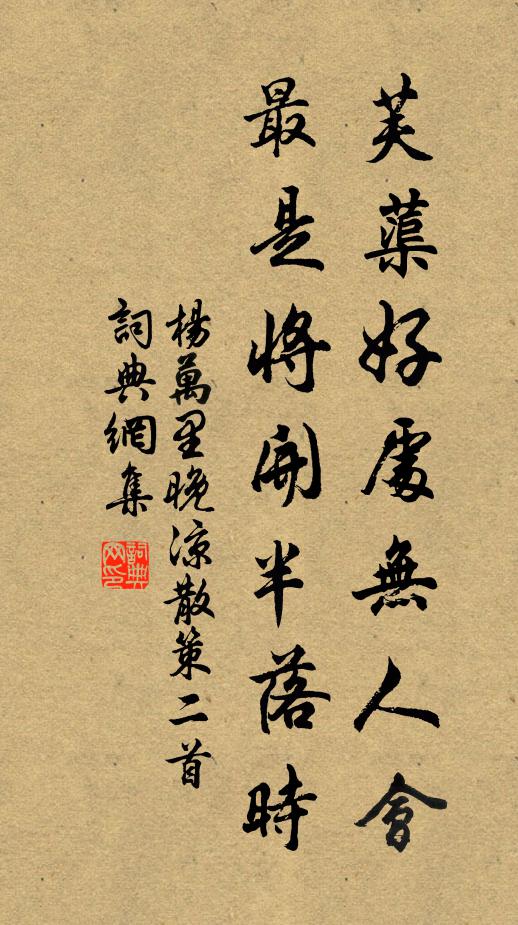 芙蕖好處無人會
最是將開半落時
楊萬里晚涼散策二首
詞典網集
詞典网印